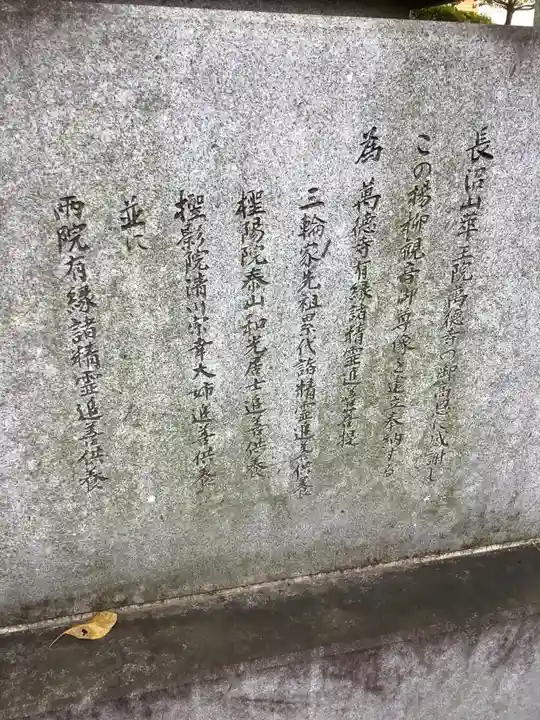 長沼山華王院萬徳寺の御高恩に感謝し
この楊柳観音御尊像を造立奉納する
為 萬徳寺有縁諸精霊追善菩提
三輪家先祖累代諸精霊追善供養
樫陽院泰山和光居士追善供養
樫影院清川宗幸大姉追善供養
並に
両院有縁諸精霊追善供養